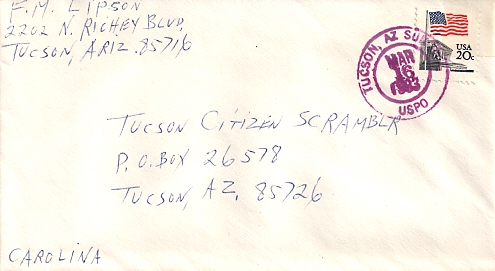 F. M. LIPSON
2202 N. RICHEY BLVD,
TUCSON, ARIZ. 85716
TUCSON, AZ
MAR
16
1983
USPO
USA
20c
TUCSON CITIZEN SCRAMBLR
P. O. BOX 26578
TUCSON, AZ, 85726
CAROLINA